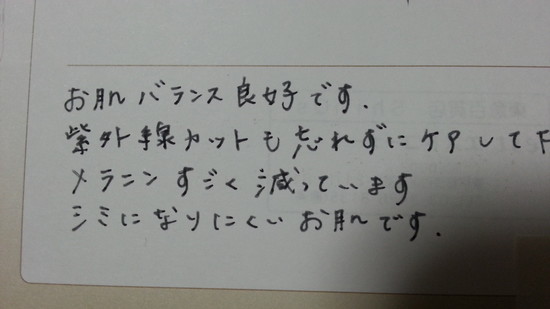 お肌バランス良好です.
紫外線カットも忘れずにケアして下
メラニンすごく減っています
シミになりにくいお肌です.